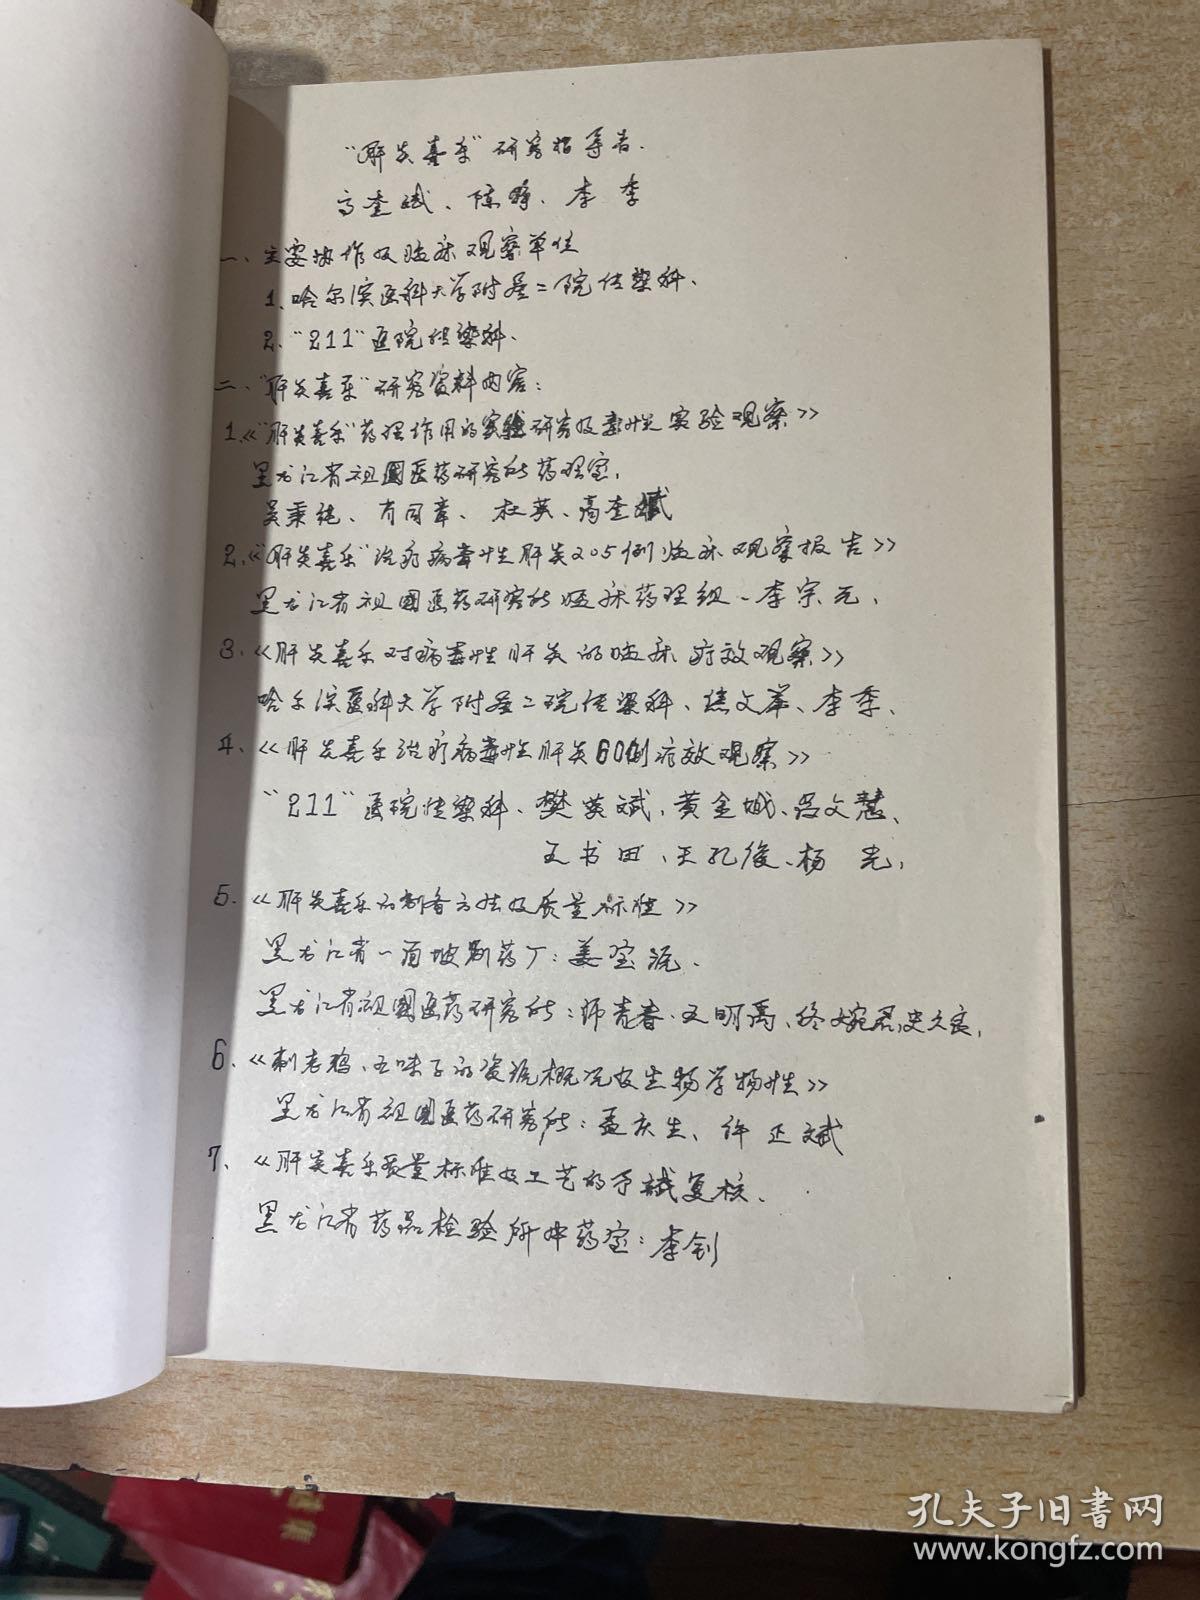 “肝炎喜乐”研究指导者.
高奎斌、陈峥、李季
一、主要协作及临床观察单位
1、哈尔滨医科大学附属二院传染科、
2、“211”医院传染科、
二、“肝炎喜乐”研究资料内容：
1.《“肝炎喜乐”药理作用的实验研究及毒性实验观察》
黑龙江省祖國医药研究所药理室，
吴秉纯、肖同章、杜英、高奎斌
2、《“肝炎喜乐”治疗病毒性肝炎205例临床观察报告》
黑龙江省祖國医药研究所临床药理组、李宗元、
3、《肝炎喜乐对病毒性肝炎的临床疗效观察》
哈尔滨医科大学附属二院传染科、焦文举、李季、
4、《肝炎喜乐治疗病毒性肝炎60例疗效观察》
“211”医院传染科、樊英斌，黄金城、吕文慧、
王书田、王孔俊、杨光，
5.《肝炎喜乐的制备方法及质量标准》
黑龙江省一面坡制药厂：姜宝沅、
黑龙江省祖國医药研究所：师青春、王明禹、佟婉君，史久良，
6、《刺老鸦、五味子的资源概况及生物学物性》
黑龙江省祖國医药研究所：孟庆生、许正斌
7、《肝炎喜乐质量标准及工艺的予試复核、
黑龙江省药品检验所中药室：李钊
孔夫子旧書网
www.kongfz.com